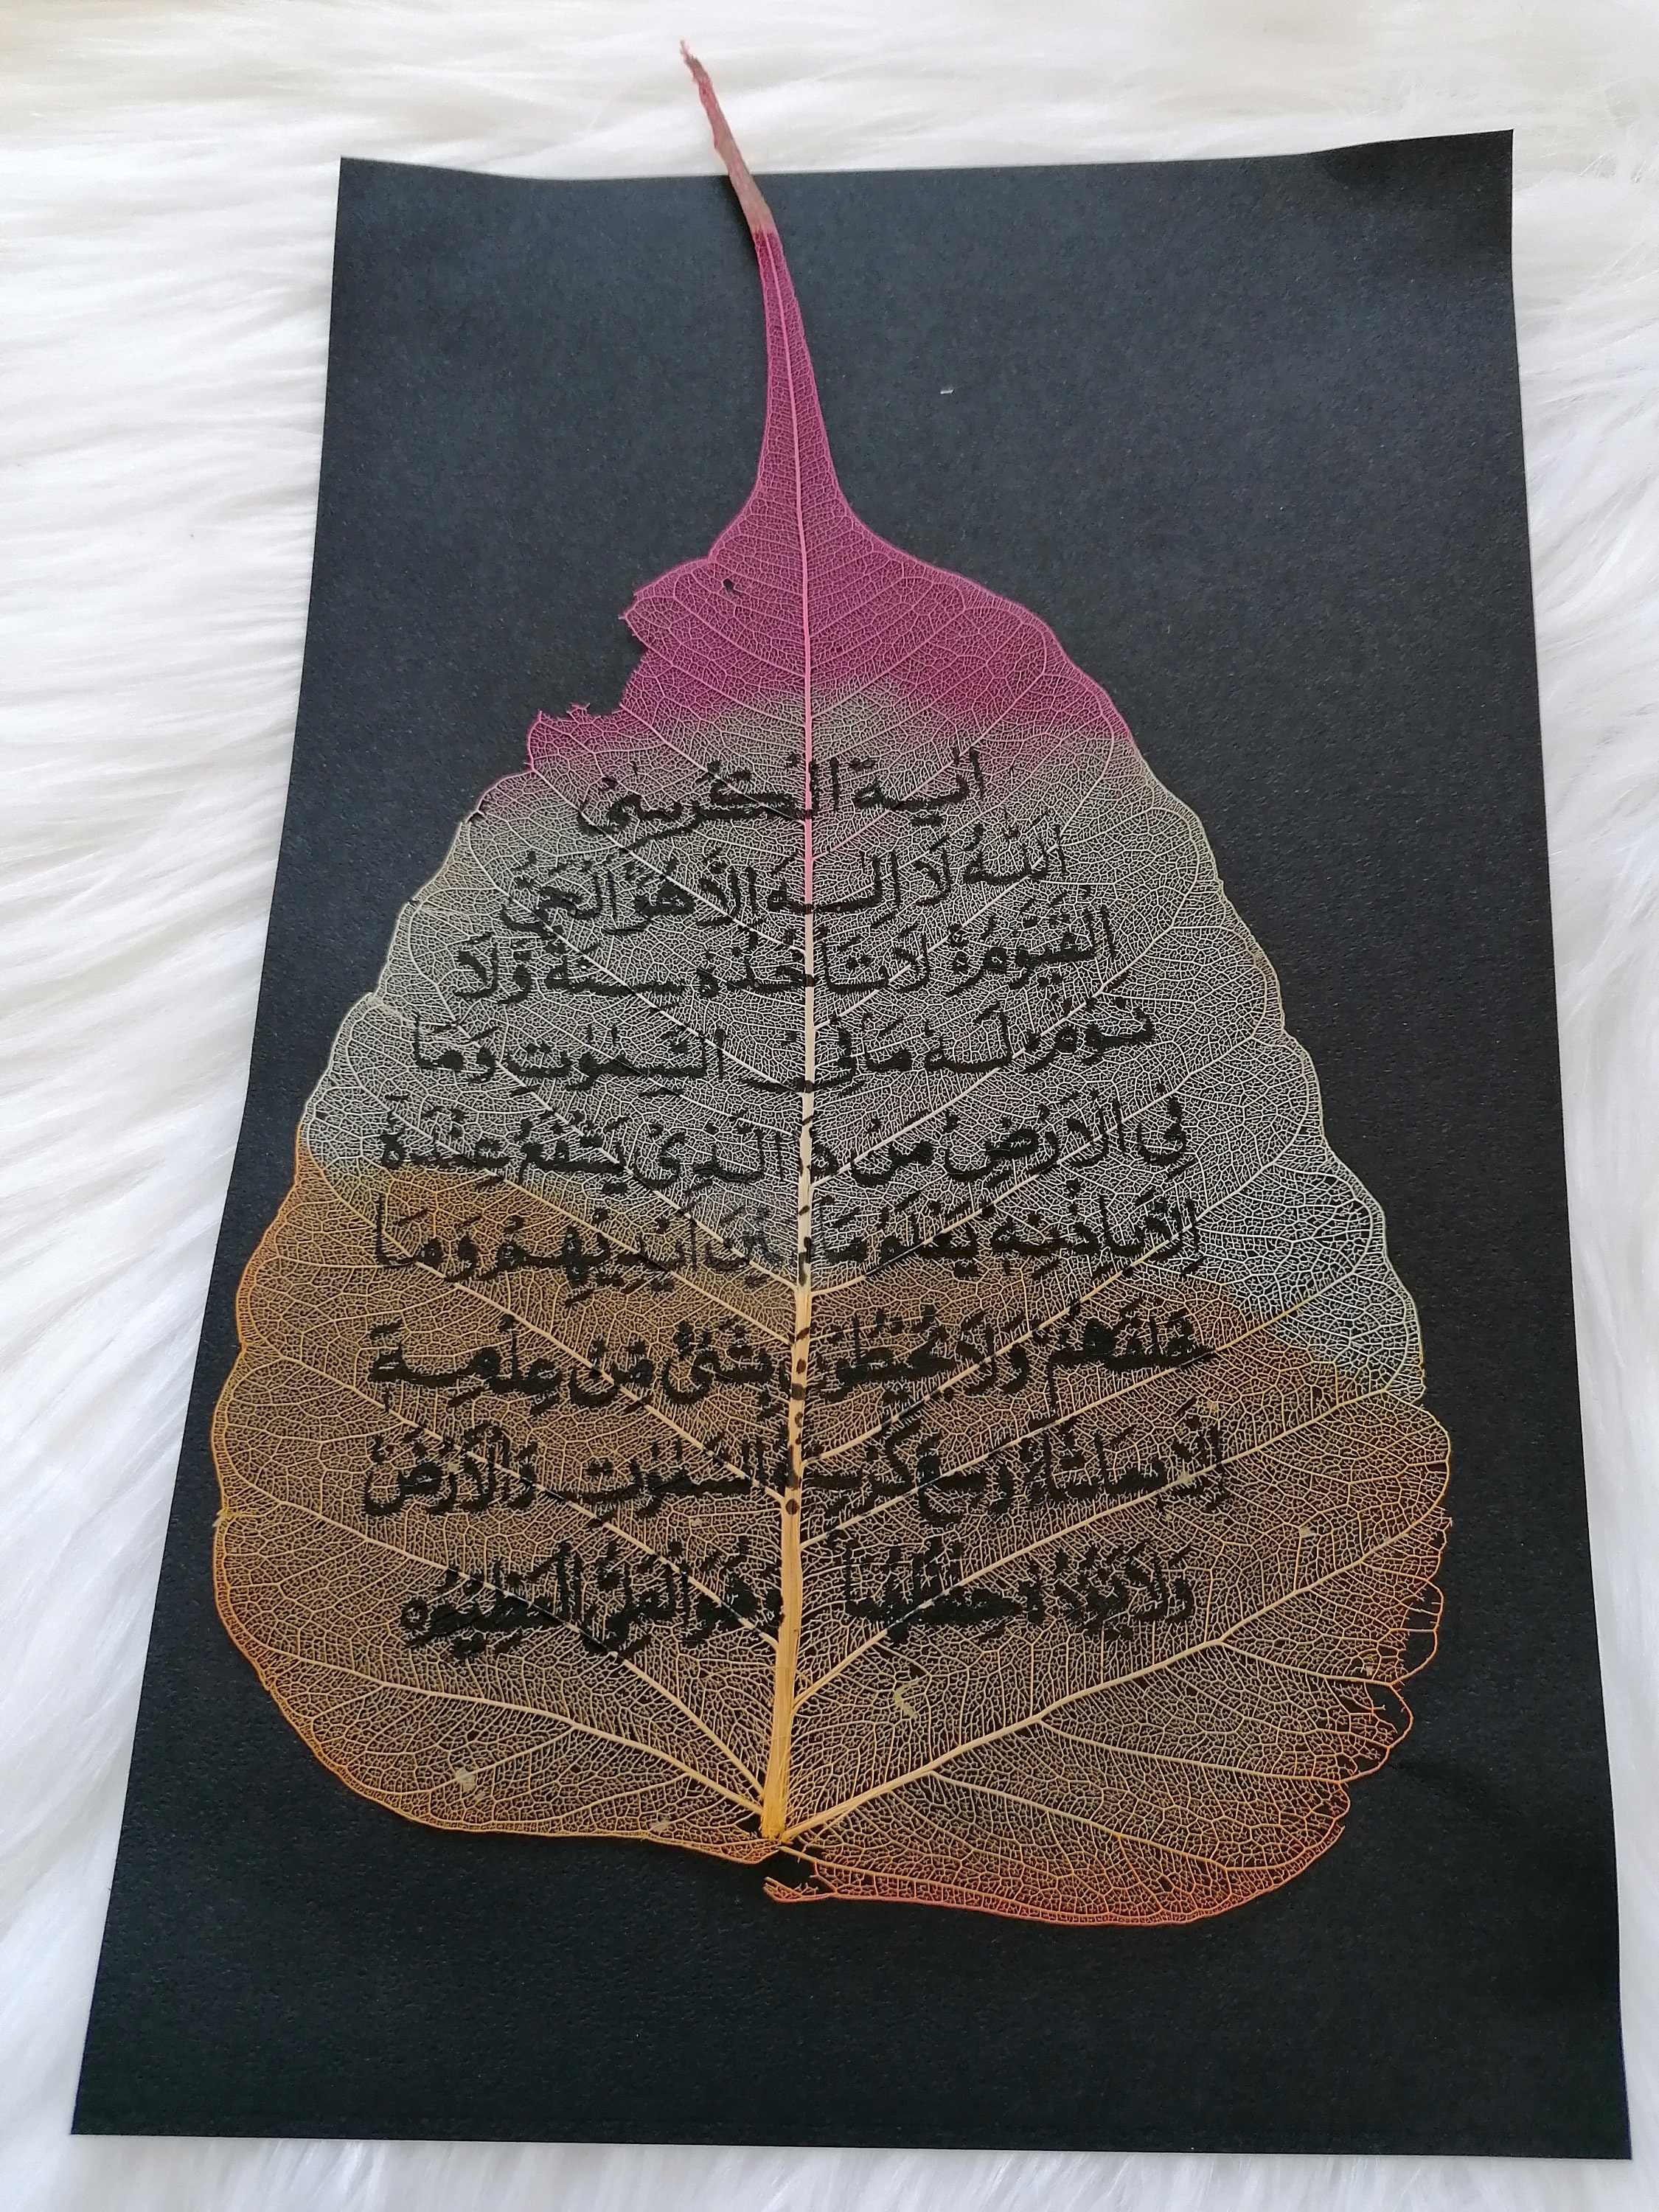 اٰيــة الكرسىْ
اَللّٰهُ لَا اِلٰــهَ اِلَّا هُوَ اَلْحَىُّ
الْقَيُّوْمُ ۚ لَا تَاْخُذُهٗ سِــنَةٌ وَّلَا
نَــوْمٌ ؕ لَــهٗ مَا فِى السَّمٰوٰتِ وَمَا
فِى الْاَرْضِ ؕ مَنْ ذَا الَّذِىْ يَشْفَعُ عِنْدَهٗۤ
اِلَّا بِاِذْنِهٖ ؕ يَعْلَمُ مَا بَيْنَ اَيْدِيْهِمْ وَمَا
خَلْفَهُمْ ۚ وَلَا يُحِيْطُوْنَ بِشَىْءٍ مِّنْ عِلْمِــهٖۤ
اِلَّا بِمَا شَآءَ ۚ وَسِعَ كُرْسِيُّهُ السَّمٰوٰتِ وَالْاَرْضَ ۚ
وَلَا يَئُوْدُهٗ حِفْظُهُمَا ۚ وَهُوَ الْعَلِىُّ الْعَظِيْمُ